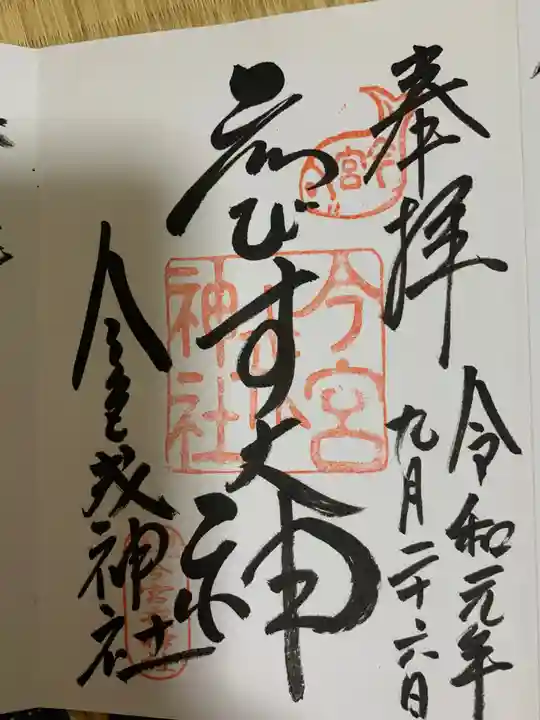 奉拝
令和元年
九月二十六日
ゑびす大神
今宮戎神社
今宮
神社